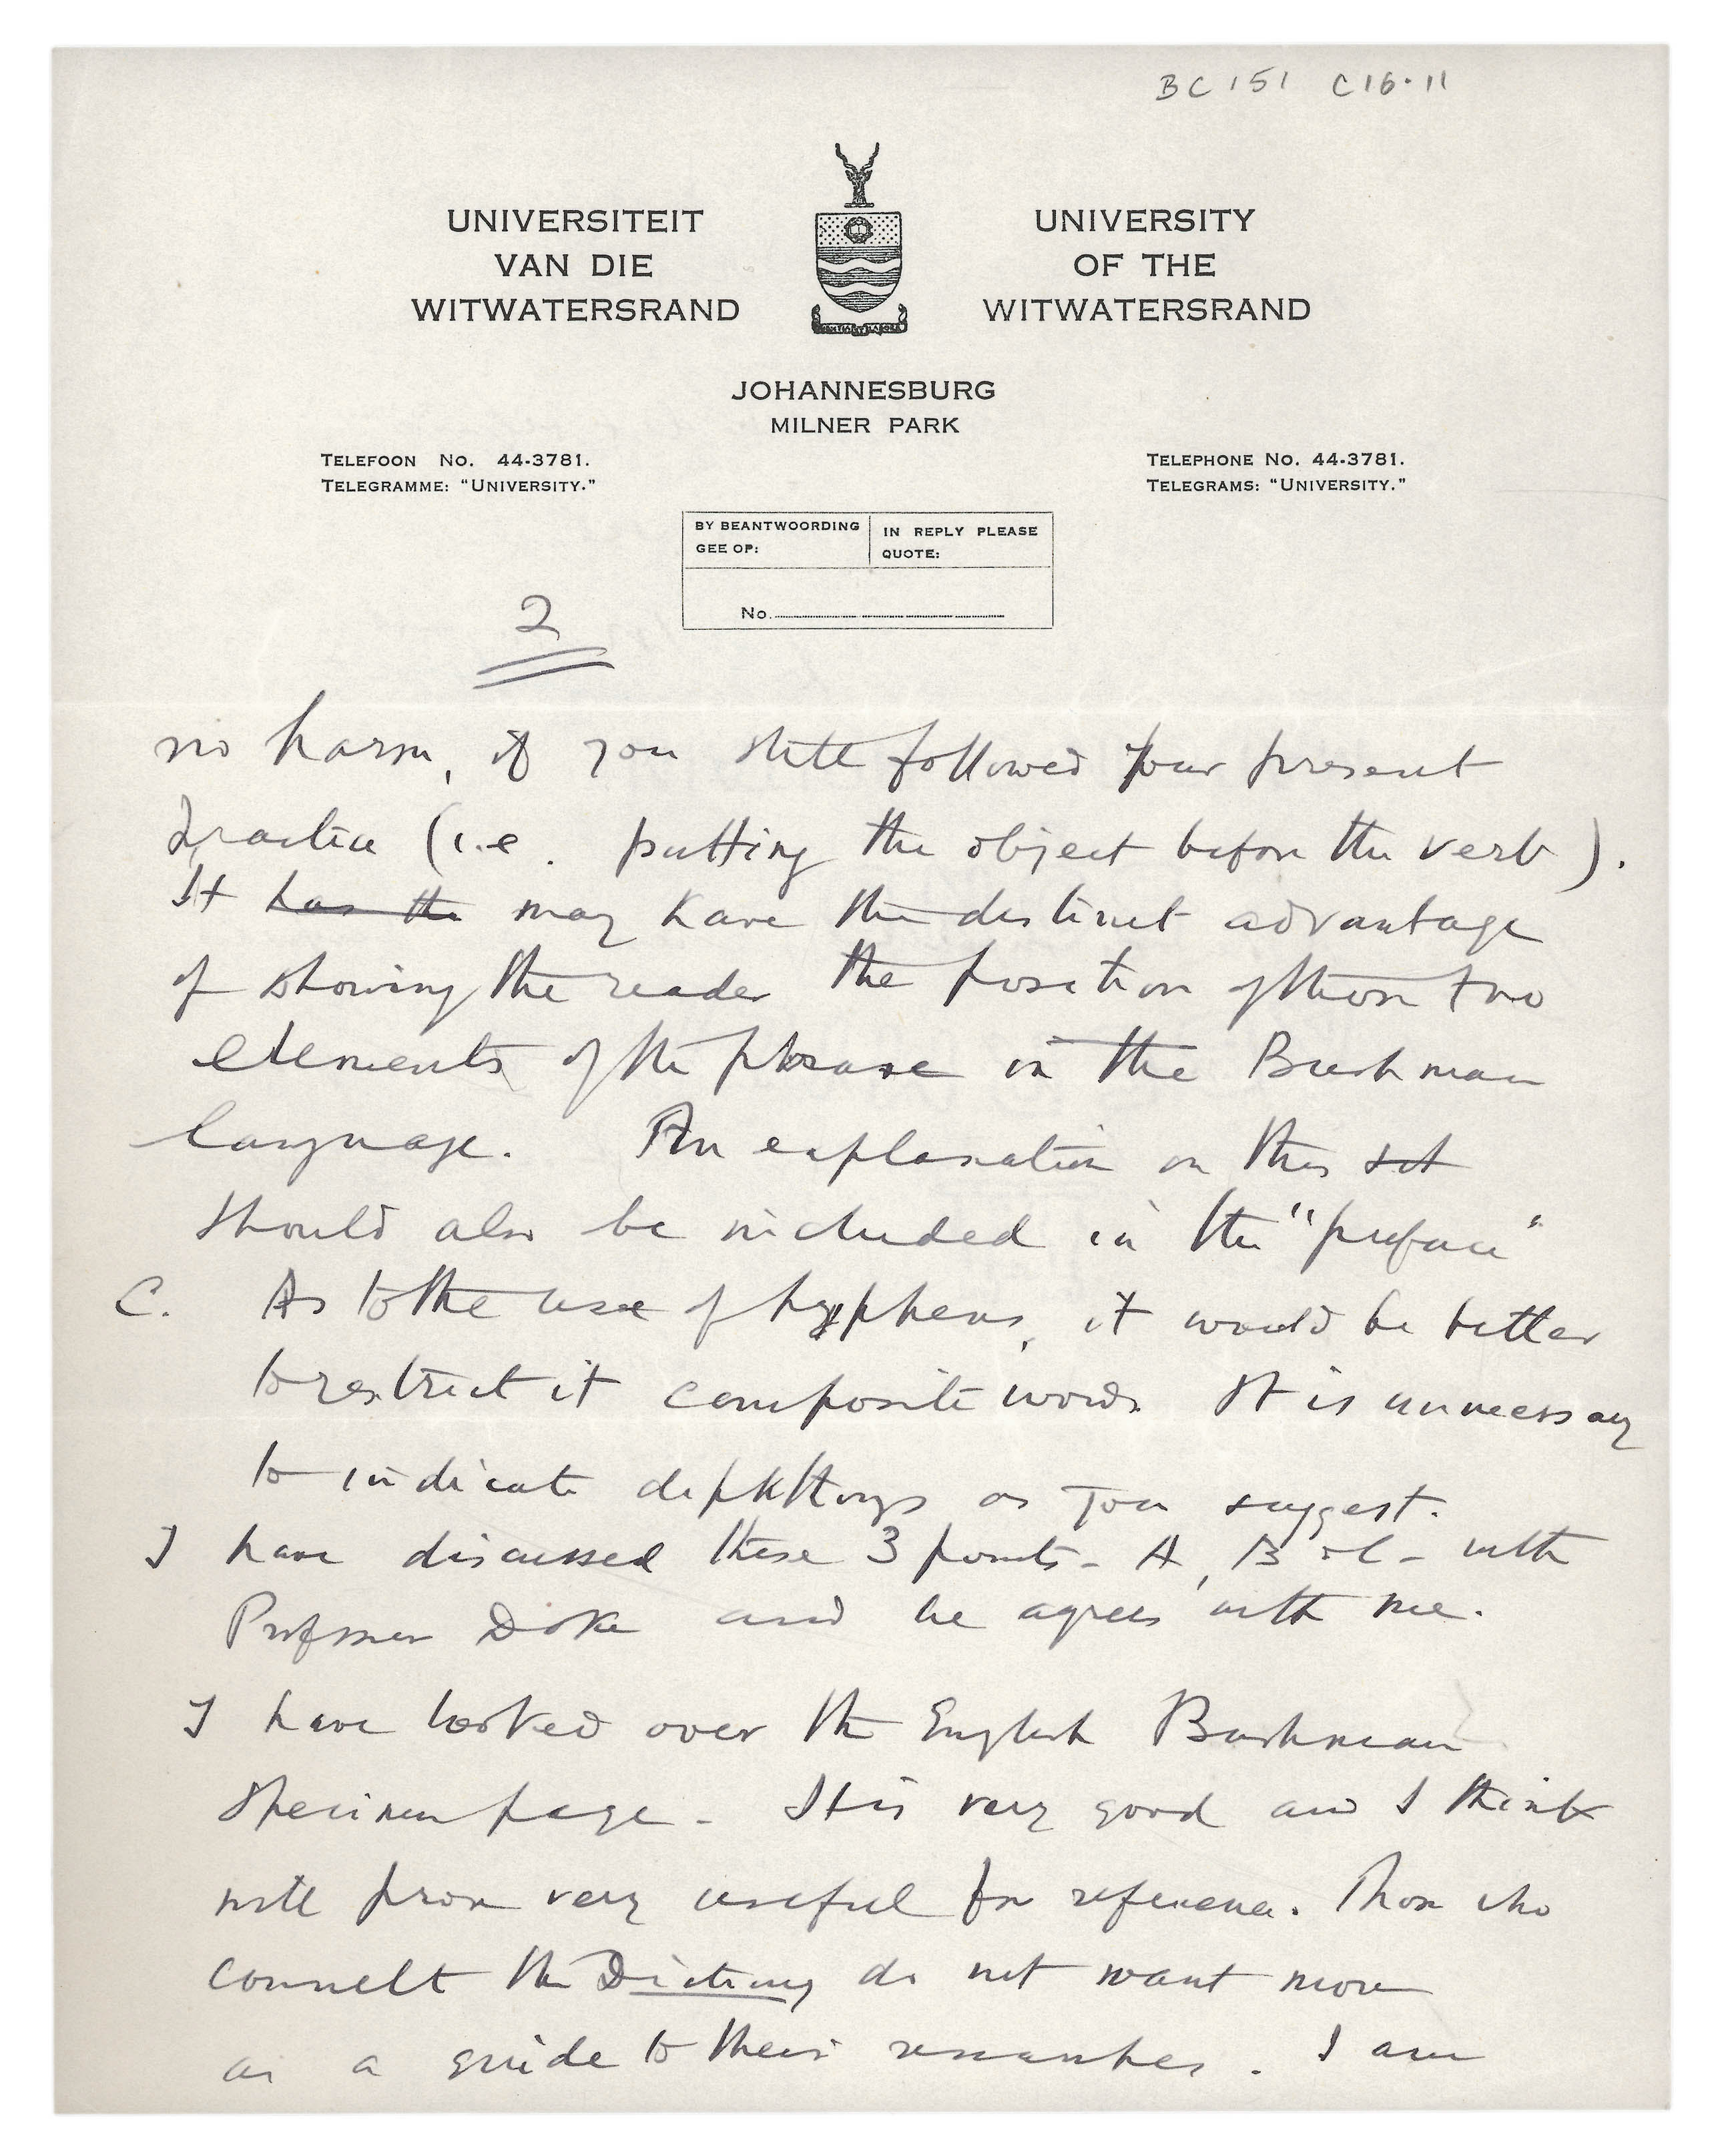 BC 151 C16.11
UNIVERSITEIT
VAN DIE
WITWATERSRAND
UNIVERSITY
OF THE
WITWATERSRAND
JOHANNESBURG
MILNER PARK
TELEFOON No. 44-3781.
TELEGRAMME: "UNIVERSITY."
TELEPHONE No. 44-3781.
TELEGRAMS: "UNIVERSITY."
BY BEANTWOORDING
GEE OP:
IN REPLY PLEASE
QUOTE:
No.
2
no harm, if you still followed your present
practice (i.e. putting the object before the verb).
It has the may have the distinct advantage
of showing the reader the position of those two
elements of the phrase in the Bushman
language. An explanation on this
should also be included in the "preface"
C. As to the use of hyphens, it would be better
to restrict it composite words. It is unnecessary
to indicate diphthongs as you suggest.
I have discussed these 3 points - A, B & C - with
Professor Doke and he agrees with me.
I have looked over the English Bushman
specimen page. It is very good and I think
will prove very useful for reference. Those who
consult the Dictionary do not want more
as a guide to their researches. I am